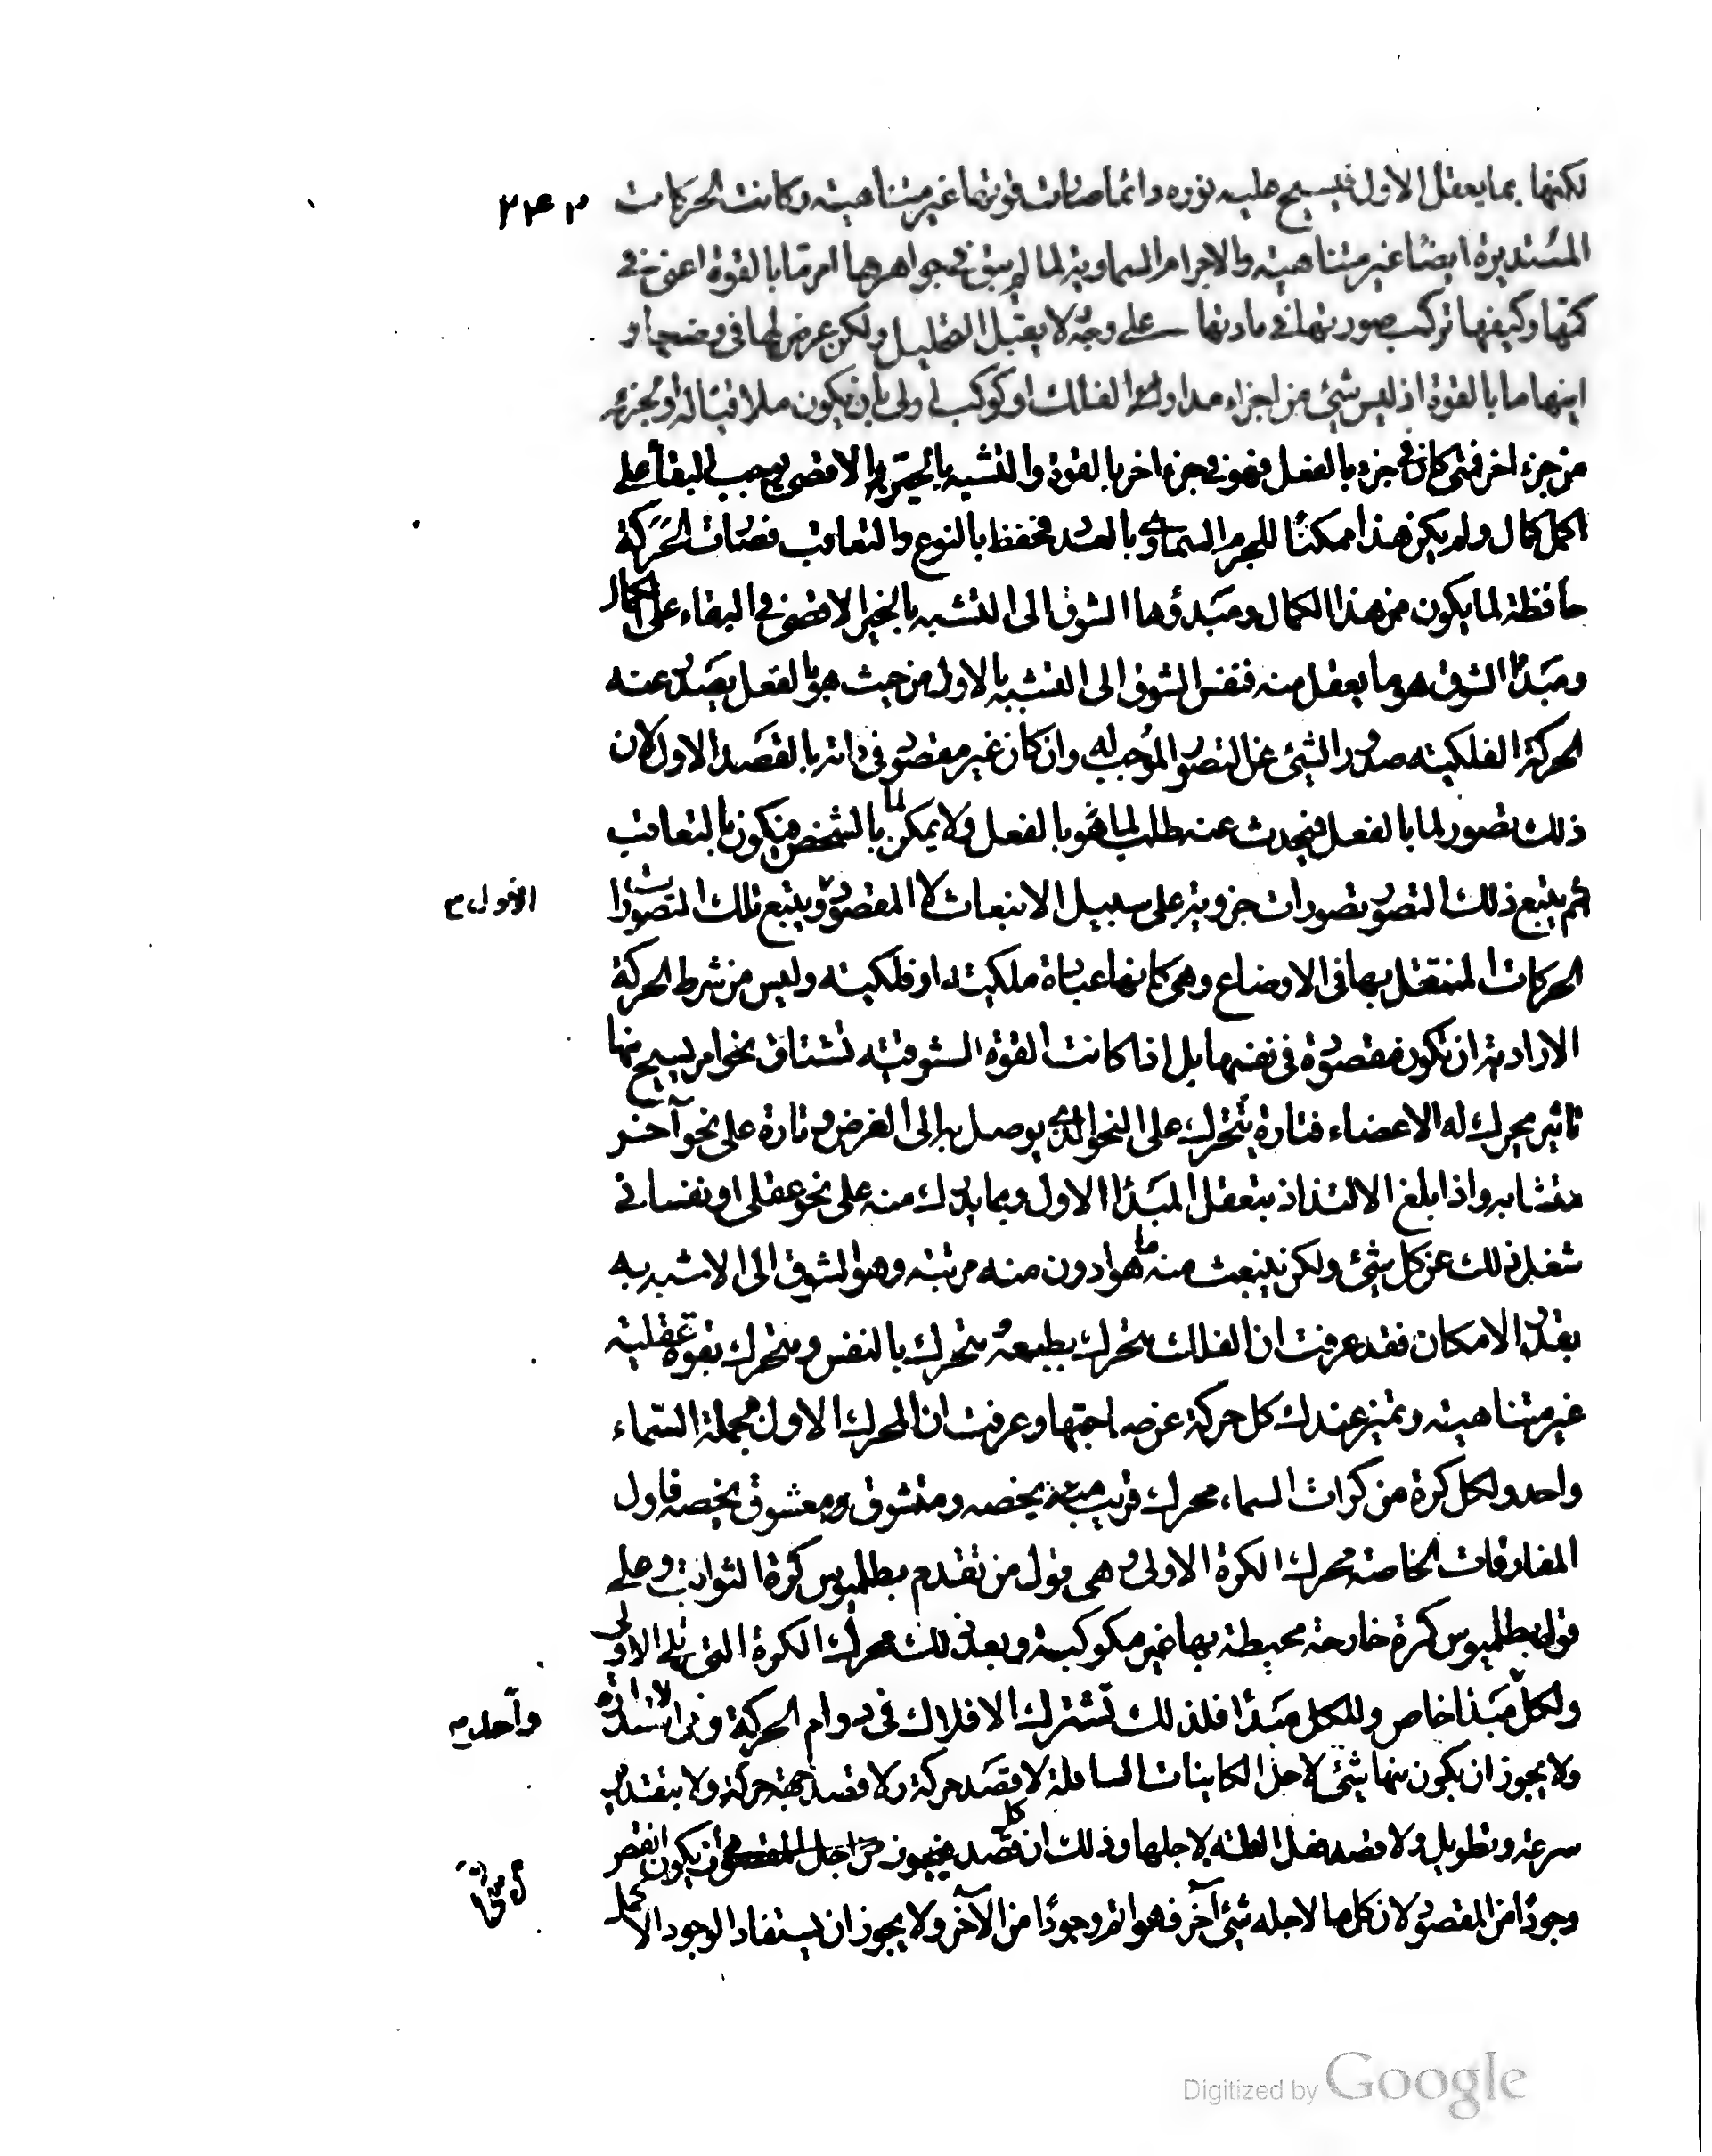 ٢٤٣
لكنها بما يعقل الاول فيسيح عليه نوره دائما صارت قوتها غير متناهية وكانت الحركات
المستديرة ايضا غير متناهية والاجرام السماوية لما لم يبق في جواهرها امر ما بالقوة اعني في
كمها وكيفها تركب صورتها في مادتها على وجه لا يقبل التحليل ولكن عرض لها في وضعها و
اينها ما بالقوة اذ ليس شيء من اجزاء مدار الفلك او كوكب اولى بان يكون ملاقيا له او لجزئه
من جزء اخر فمتى كان في جزء بالفعل فهو في جزء اخر بالقوة والتشبه بالخير الاقصى يوجب البقاء على
اكمل كمال ولم يكن هذا ممكنا للجرم السماوي بالعدد فحفظ بالنوع والتعاقب فصارت الحركة
حافظة لما يكون من هذا الكمال ومبدؤها الشوق الى التشبه بالخير الاقصى في البقاء على الكمال
ومبدأ الشوق هو ما يعقل منه فنفس الشوق الى التشبه بالاول من حيث هو بالفعل يصدر عنه
الحركة الفلكية صدور الشيء عن التصور الموجب له وان كان غير مقصود في ذاته بالقصد الاول لان
ذلك تصور لما بالفعل فيحدث عنه طلب لما هو بالفعل ولا يمكن لما بالشخص فيكون بالتعاقب
ثم يتبع ذلك التصور تصورات جزوية على سبيل الانبعاث لا المقصود ويتبع تلك التصورات
الاول
الحركات المنتقل بها في الاوضاع وهي كانها عبادة ملكية او فلكية وليس من شرط الحركة
الارادية ان تكون مقصودة في نفسها بل اذا كانت القوة الشوقية تشتاق نحو امر يسيح منها
تاثير يحرك له الاعضاء فتارة يتحرك على النحو الذي يوصل به الى الغرض وتارة على نحو آخر
متشابه واذا بلغ الالتذاذ بتعقل المبدأ الاول وبما يدرك منه على نحو عقلي او نفساني
شغل ذلك عن كل شيء ولكن ينبعث منه ما هو ادون منه مرتبة وهو الشوق الى الاشبه به
بقدر الامكان فقد عرفت ان الفلك متحرك بطبعه ومتحرك بالنفس ومتحرك بقوة عقلية
غير متناهية وتميز عندك كل حركة عن صاحبتها وعرفت ان المحرك الاول لجملة السماء
واحد ولكل كرة من كرات السماء محرك قريب يخصه ومتشوق ومعشوق يخصه فاول
المفارقات الخاصة محرك الكرة الاولى وهي قول من تقدم بطلميوس كرة الثوابت وعلى
قول بطلميوس كرة خارجة محيطة بها غير مكوكبة وبعد ذلك محرك الكرة التي تلي الاولى
ولكل مبدأ خاص وللكل مبدأ فلذلك تشترك الافلاك في دوام الحركة وفي الاستدارة
واحد
ولا يجوز ان يكون منها شيء لاجل الكاينات السافلة لا قصد حركة ولا قصد جهة حركة ولا بتقدير
سرعة وتطويل ولا قصد فعل البتة لاجلها وذلك ان كل قصد فيكون من اجل المقصود فيكون انقص
وجودا من المقصود لان كل ما لاجله شيء آخر فهو اتم وجودا من الآخر ولا يجوز ان يستفاد الوجود الاكمل
Digitized by Google